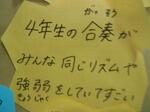 がっそう
4年生の合奏が
みんな同じリズムや
強弱をしていてすごい
きょうじゃく